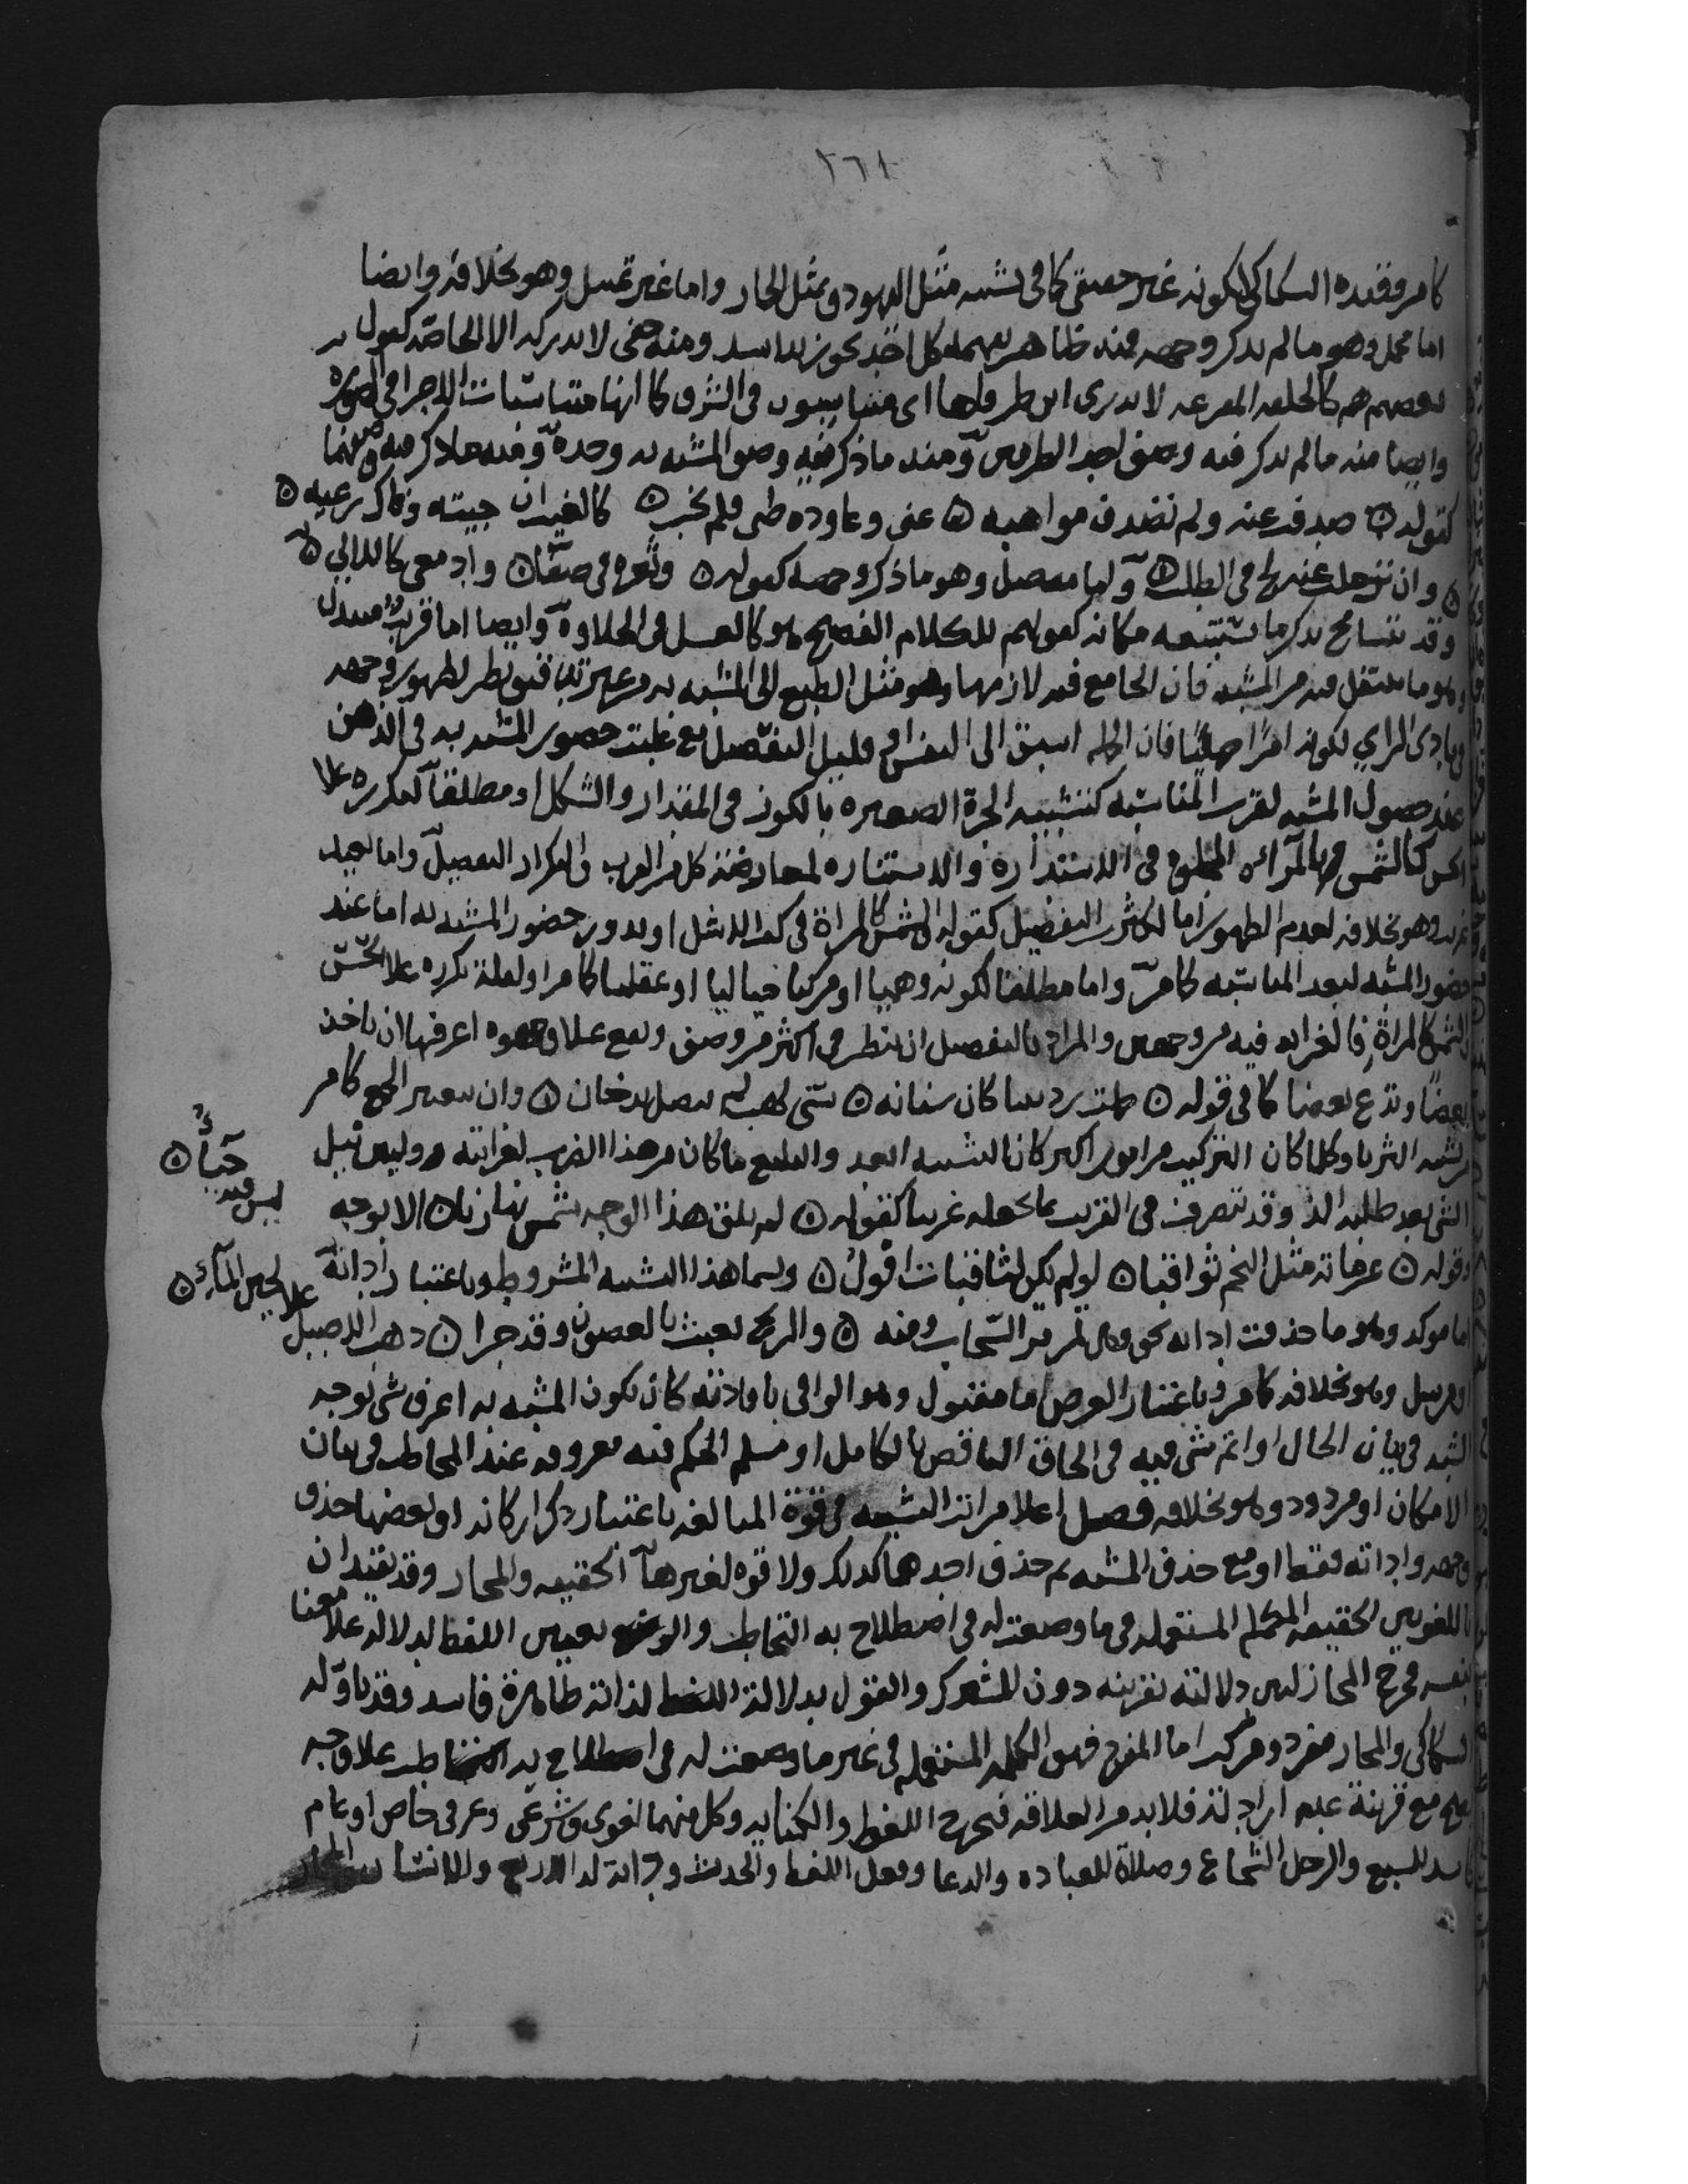 ٢٦١
كامر وقيده السكاكي لكونه غير حقيقي كما في تشبيه مثل اليهود بمثل الحمار واما غير تمثيل وهو بخلافه وايضا
اما مجمل وهو ما لم يذكر وجهه فمنه ظاهر يفهمه كل احد نحو زيد اسد ومنه خفي لا يدركه الا الخاصة كقول
بعضهم هم كالحلقة المفرغة لا يدرى اين طرفاها اي متناسبون في الشرف كما انها متناسبات الاجزا في الصورة
وايضا منه ما لم يذكر فيه وصف احد الطرفين ومنه ما ذكر فيه وصف المشبه به وحده ومنه ما ذكر فيه وصفهما
كقوله صدفت عنه ولم تصدف مواهبه عني وعاوده ظني فلم يخب كالغيث ان جيته وفاك ريقه
وان ترحلت عنه لج في الطلب واما مفصل وهو ما ذكر وجهه كقوله وثغره في صفا وادمعي كاللالي
وقد يتسامح بذكر ما يستتبعه مكانه كقولهم للكلام الفصيح هو كالعسل في الحلاوة وايضا اما قريب مبتذل
وهو ما ينتقل فيه من المشبه فان الجامع فيه لازمها وهو مثل الطبع الى المشبه به من غير تدقيق نظر لظهور وجهه
في بادي الراي لكونه امرا جمليا فان الجملة اسبق الى النفس او قليل التفصيل مع غلبة حضور المشبه به في الذهن
عند حضول المشبه لقرب المناسبة كتشبيه الجرة الصغيرة بالكوز في المقدار والشكل او مطلقا لتكرره علا
الحس كالشمس بالمرآة المجلوة في الاستدارة والاستنارة لمعارضة كل من القرب والتكرار التفصيل واما بعيد
غريب وهو بخلافه لعدم الظهور اما لكثرة التفصيل كقوله والشمس كالمراة في كف الاشل او بدور حضور المشبه به اما عند
حضور المشبه لبعد المناسبة كما مر واما مطلقا لكونه وهميا او مركبا خياليا او عقليا كما مر او لقلة تكرره علا الحس
الشمس كالمراة فالغرابة فيه من وجهين والمراد بالتفصيل ان ينظر في اكثر من وصف ويقع علا وجوه اعرفها ان تاخذ
بعضا وتدع بعضا كما في قوله حملت ردينيا كان سنانه سنى لهب لم يتصل بدخان وان تعتبر الجميع كما مر
من تشبيه الثريا وكلما كان التركيب من امور اكثر كان التشبيه ابعد والبليغ ما كان من هذا الضرب لغرابته وليس نيل
الشي بعد طلبه الذ وقد تتصرف في القريب بما يجعله غريبا كقوله لم يلق هذا الوجه شمس نهارنا الا بوجه
ليس فيه
حياء
وقوله عزماته مثل النجم ثواقبا لو لم يكن لثاقبات افول ويسما هذا التشبيه المشروط وباعتبار اداته
اما موكد وهو ما حذفت اداته نحو وهي تمر مر السحاب ومنه والريح تعبث بالغصون وقد جرا ذهب الاصيل
علا لجين الماء
او مرسل وهو بخلافه كما مر وباعتبار الغرض اما مقبول وهو الوافي بافادته كان يكون المشبه به اعرف شي بوجه
الشبه في بيان الحال او اتم شي فيه في الحاق الناقص بالكامل او مسلم الحكم فيه معروفه عند المخاطب في بيان
الامكان او مردود وهو بخلافه فصل اعلا مراتب التشبيه في قوة المبالغة باعتبار ذكر اركانه او بعضها حذف
وجهه واداته فقط او مع حذف المشبه ثم حذف احدهما كذلك ولا قوة لغيرهما الحقيقه والمجاز وقد يقيدان
باللغويين الحقيقة الكلمة المستعملة فيما وضعت له في اصطلاح به التخاطب والوضع تعيين اللفظ لدلالة علا معنا
بنفسه فخرج المجاز لان دلالته بقرينه دون المشترك والقول بدلالة اللفظ لذاته ظاهره فاسد وقد تاوله
السكاكي والمجاز مفرد ومركب اما المفرد فهو الكلمة المستعملة في غير ما وضعت له في اصطلاح به التخاطب علا وجه
يصح مع قرينة عدم ارادته فلا بد من العلاقة فيخرج الغلط والكنايه وكل منهما لغوي وشرعي وعرفي خاص او عام
كاسد للسبع والرجل الشجاع وصلاة للعباده والدعا وفعل للفظ والحدث ودابة لذي الاربع والانسان والمجاز